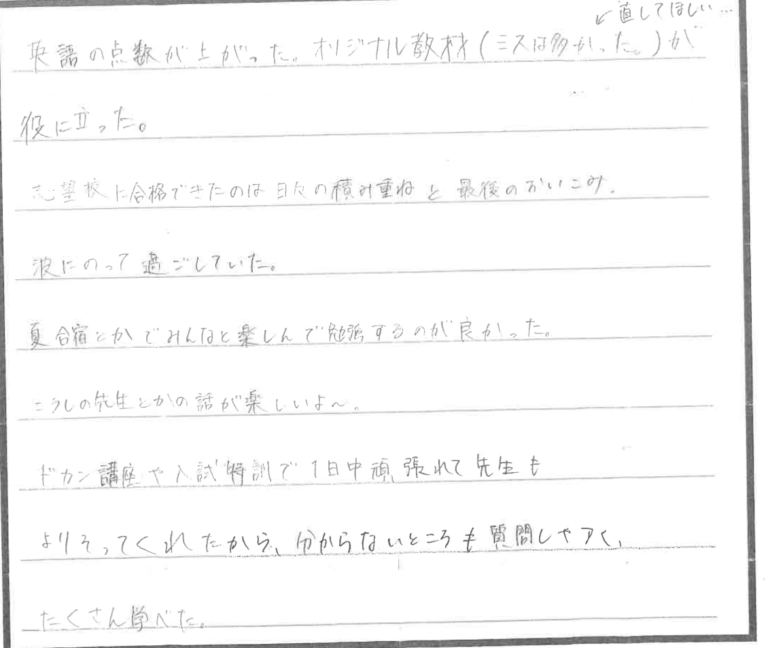 ←直してほしい…
英語の点数が上がった。オリジナル教材(ミスは多かった。)が
役に立った。
志望校に合格できたのは日々の積み重ねと最後のおいこみ。
波にのって過ごしていた。
夏合宿とかでみんなと楽しんで勉強するのが良かった。
こうしの先生とかの話が楽しいよ〜。
ドカン講座や入試特訓で1日中頑張れて先生も
よりそってくれたから、分からないところも質問しやすく、
たくさん学べた。